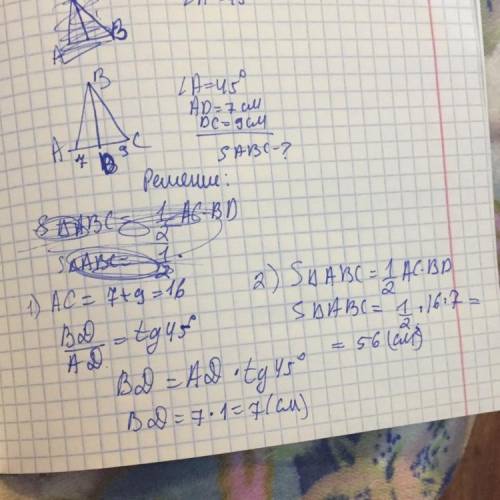 A B
∠A=45°
B
A 7 D 9 C
∠A=45°
AD=7см
DC=9см
SABC-?
Решение:
SΔABC=1/2 AC·BD
SΔABC=1/2·
1) AC=7+9=16
BD/AD=tg45°
BD=AD·tg45°
BD=7·1=7(см)
2) SΔABC=1/2 AC·BD
SΔABC=1/2·16·7=
=56(см)